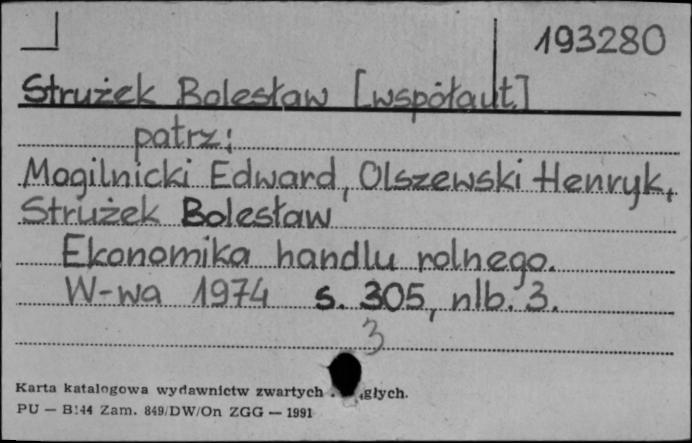 193280
Strużek Bolesław [współaut.]
patrz:
Mogilnicki Edward, Olszewski Henryk,
Strużek Bolesław
Ekonomika handlu rolnego.
W-wa 1974 s. 305, nlb. 3.
3
Karta katalogowa wydawnictw zwartych głych.
PU — B144 Zam. 849/DW/On ZGG — 1991